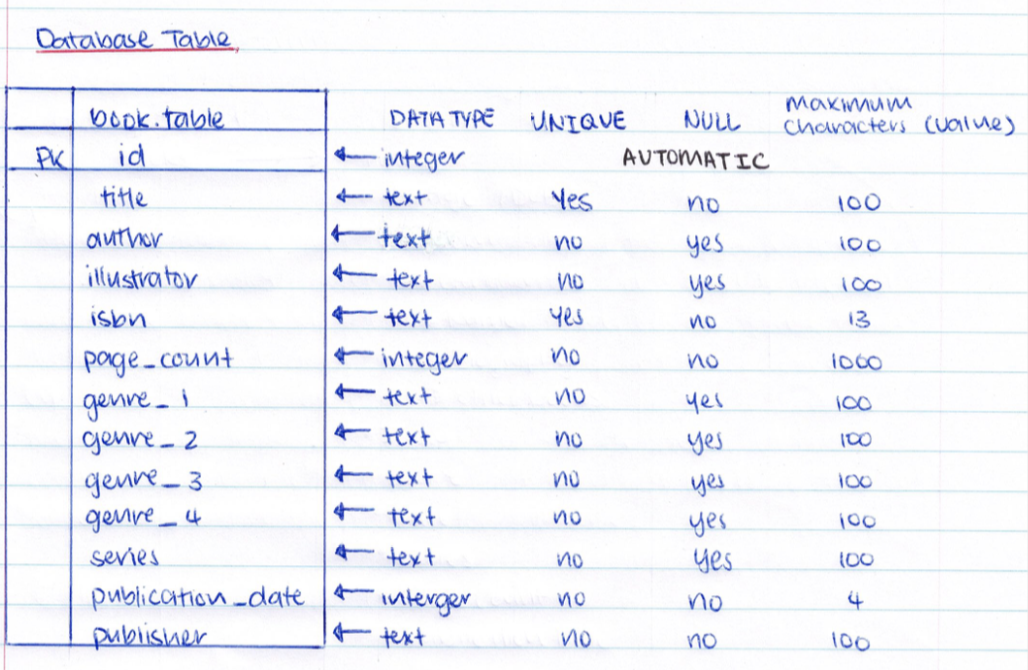 Database Table
book.table DATA TYPE UNIQUE NULL Maximum characters (value)
PK id integer AUTOMATIC
title text Yes no 100
author text no yes 100
illustrator text no yes 100
isbn text Yes no 13
page_count integer no no 1000
genre_1 text no yes 100
genre_2 text no yes 100
genre_3 text no yes 100
genre_4 text no yes 100
series text no Yes 100
publication_date interger no no 4
publisher text no no 100